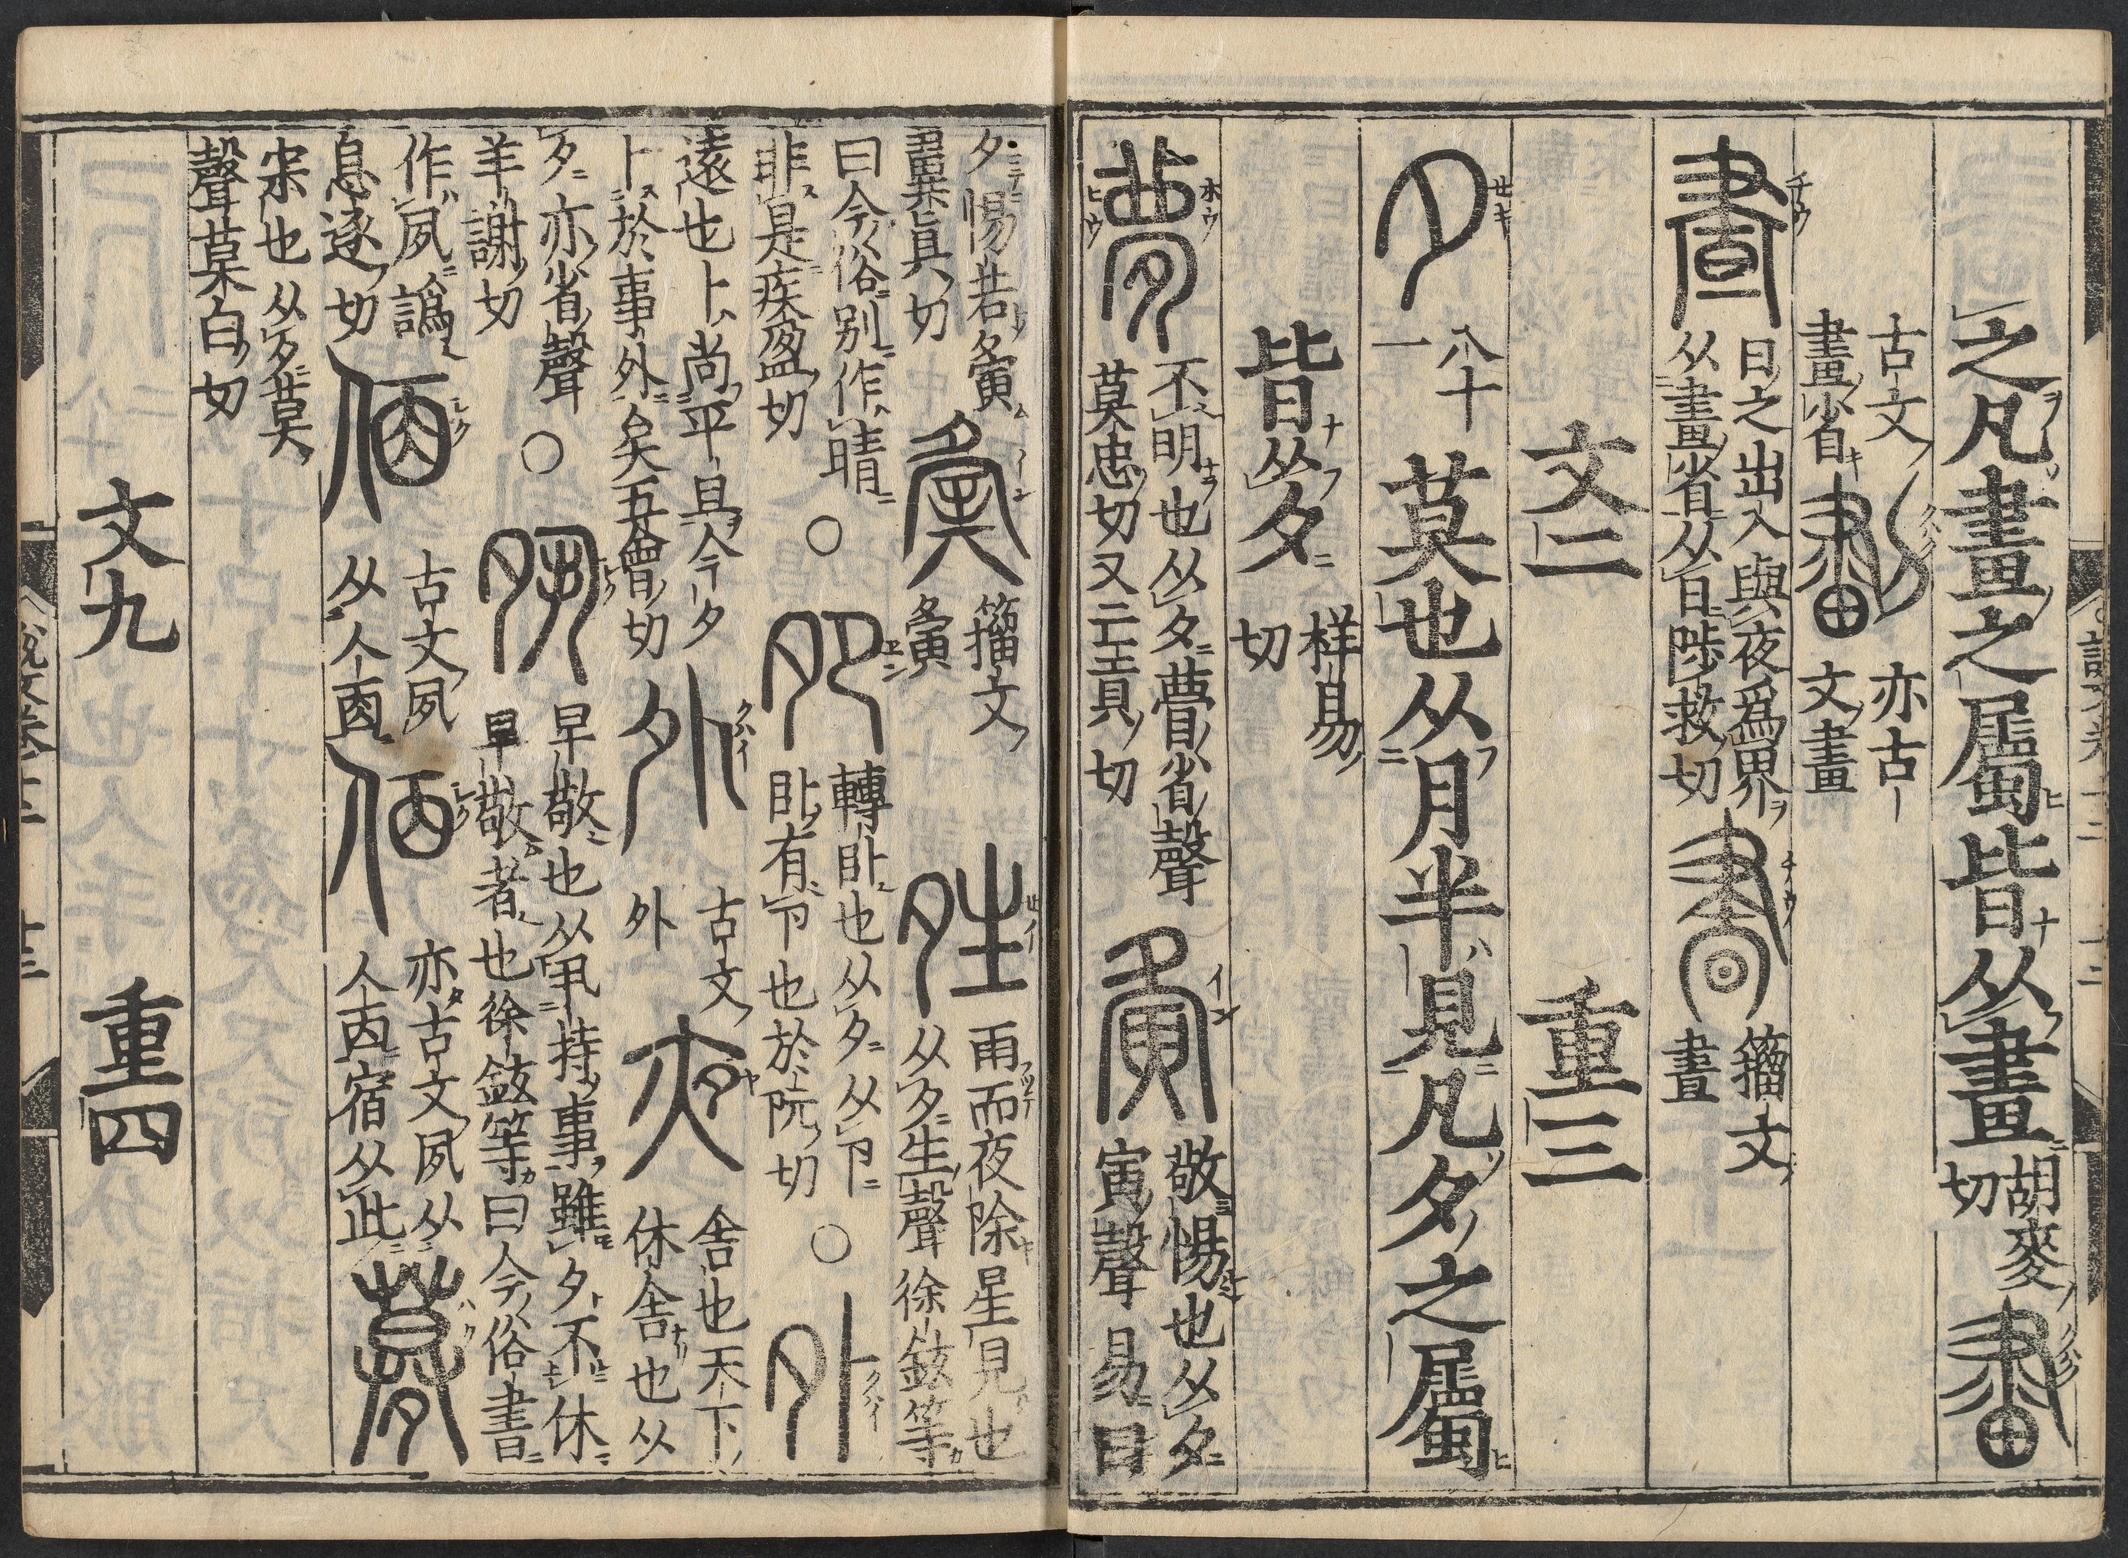 之凡畫之屬皆从畫 胡麥切
古文畫省 亦古文畫
日之出入與夜爲界从畫省从日陟救切 籀文晝
文二 重三
夕 八十一 莫也从月半見凡夕之屬
皆从夕 祥易切
夢 不明也从夕瞢省聲莫忠切又亡貢切 夤 敬惕也从夕寅聲易曰
夕惕若夤翼眞切 籀文夤 夝 雨而夜除星見也从夕生聲徐鉉等
曰今俗別作晴非是疾盈切 ○ 夗 轉臥也从夕从卪臥有卪也於阮切 ○ 外
遠也卜尚平旦今夕卜於事外矣五會切 古文外 夜 舍也天下休舍也从
夕亦省聲羊謝切 ○ 夙 早敬也从丮持事雖夕不休早敬者也徐鉉等曰今俗書
作夙譌息逐切 古文夙从人㐁 亦古文夙从人㐁宿从此
宋也从夕莫聲莫白切
文九 重四
説文卷十二 十三